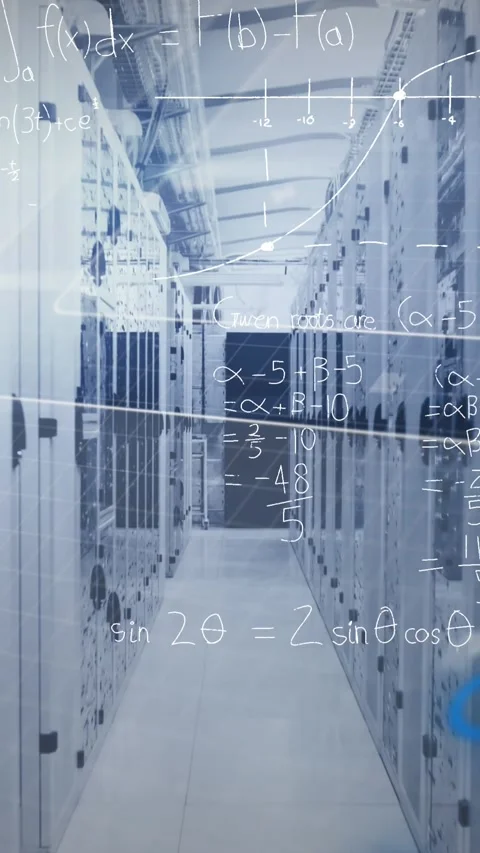 ∫a f(x)dx = F(b)-F(a)
n(3t)+ce
-t/2
-12 -10 -8 -6 -4
Given roots are (α-5
α-5+β-5 (α-
=α+β-10 =αβ
=2/5 -10 =αβ
=-48/5
sin 2θ = 2 sinθcosθ